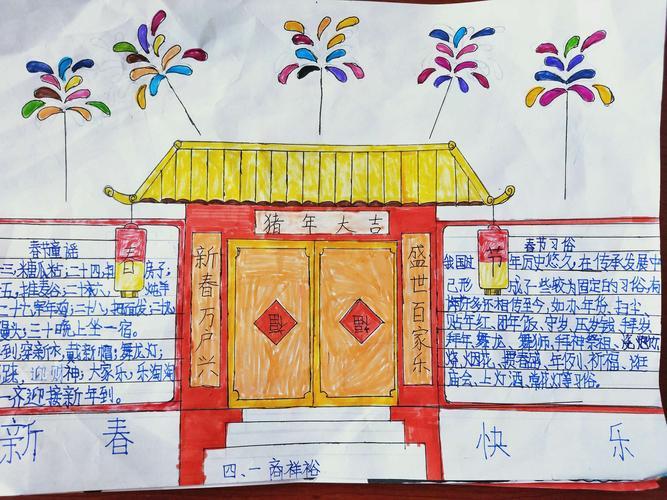 猪年大吉
新春万户兴
盛世百家乐
福
福
春
节
春节童谣
三;糖瓜粘;二十四;扫房子;
馒头;三十晚上坐一宿。
到穿新衣,戴新帽;舞龙灯;
迎财神;大家乐;乐淘淘
一齐迎接新年到。
春节习俗
我国过年历史悠久,在传承发展中
已形成了一些较为固定的习俗,有
许多还相传至今,如办年货、扫尘、
贴年红、团年饭、守岁、压岁钱、拜岁
拜年、舞龙、舞狮、拜神祭祖、
烧烟花、年例、祈福、逛
庙会、上灯酒、赏花灯等习俗。
新春
快乐
四、一 商祥裕